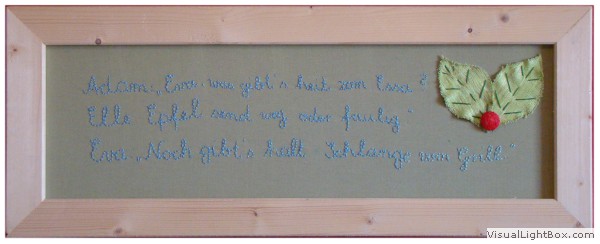 Adam: „Eva was gibt's heit zum Essa?
Elle Epfel send weg oder faulig."
Eva: „Noch gibt's halt Schlange vom Grill."
VisualLightBox.com